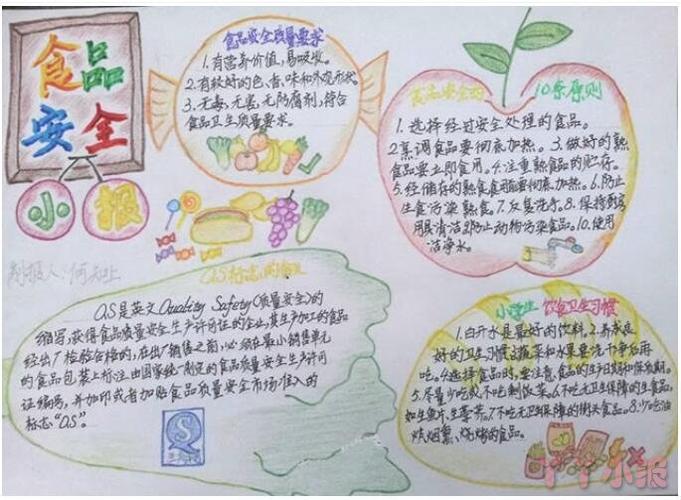 食品
安全
小报
食品安全质量要求
1.有营养价值，易吸收。
2.有较好的色、香、味和外观形状。
3.无毒，无害，无防腐剂，符合
食品卫生质量要求。
食品安全的 10条原则
1.选择经过安全处理的食品。
2.烹调食品要彻底加热。3.做好的熟
食品要立即食用。4.注重熟食品的贮存。
5.经储存的熟食食用前要彻底加热。6.防止
生食污染熟食。7.反复洗手。8.保持厨房
用具清洁。9.防止动物污染食品。10.使用
洁净水。
QS标志的
QS是英文Quality Safety(质量安全)的
缩写，获得食品质量安全生产许可证的企业，其生产加工的食品
经出厂检验合格的，在出厂销售之前，必须在最小销售单元
的食品包装上标注由国家统一制定的食品质量安全生产许可
证编号，并加印或者加贴食品质量安全市场准入的
标志"QS"。
小学生 饮食卫生习惯
1.白开水是最好的饮料。2.养成良
好的卫生习惯。3.蔬菜和水果要洗干净后再
吃。4.选择食品时，要注意食品的生产日期和保质期。
5.尽量少吃或不吃剩饭菜。6.不吃无卫生保障的生食品，
如生鱼片、生荸荠。7.不吃无卫生保障的街头食品。8.少吃油
炸、烟熏、烧烤的食品。